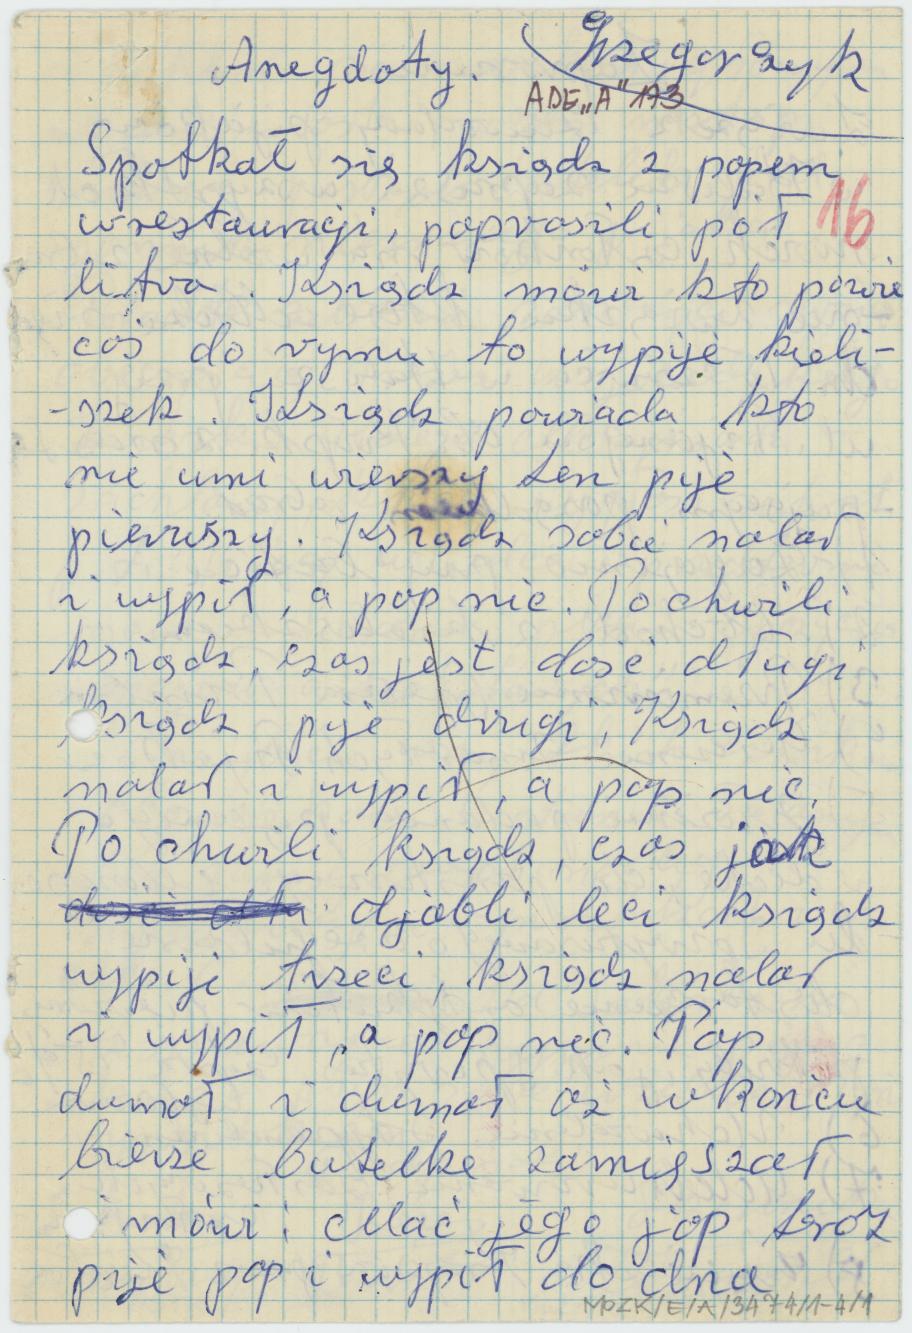 Anegdoty. Grzegorzyk
ADE „A" 173
Spotkał się ksiądz z popem
w restauracji, poprosili pół 16
litra. Ksiądz mówi kto powie
coś do rymu to wypije kieli-
-szek. Ksiądz powiada kto
nie umi wierszy ten pije
pierwszy. Ksiądz sobie nalał
i wypił, a pop nic. Po chwili
ksiądz, czas jest dość długi
ksiądz pije drugi, Ksiądz
nalał i wypił, a pop nic.
Po chwili ksiądz, czas jak
dość dłu djabli leci ksiądz
wypije trzeci, ksiądz nalał
i wypił, a pop nic. Pop
dumał i dumał aż wkońcu
bierze butelke zamięszał
i mówi: Mać jego jop teroz
pije pop i wypił do dna
MDZK/E/A/3474/1-4/1